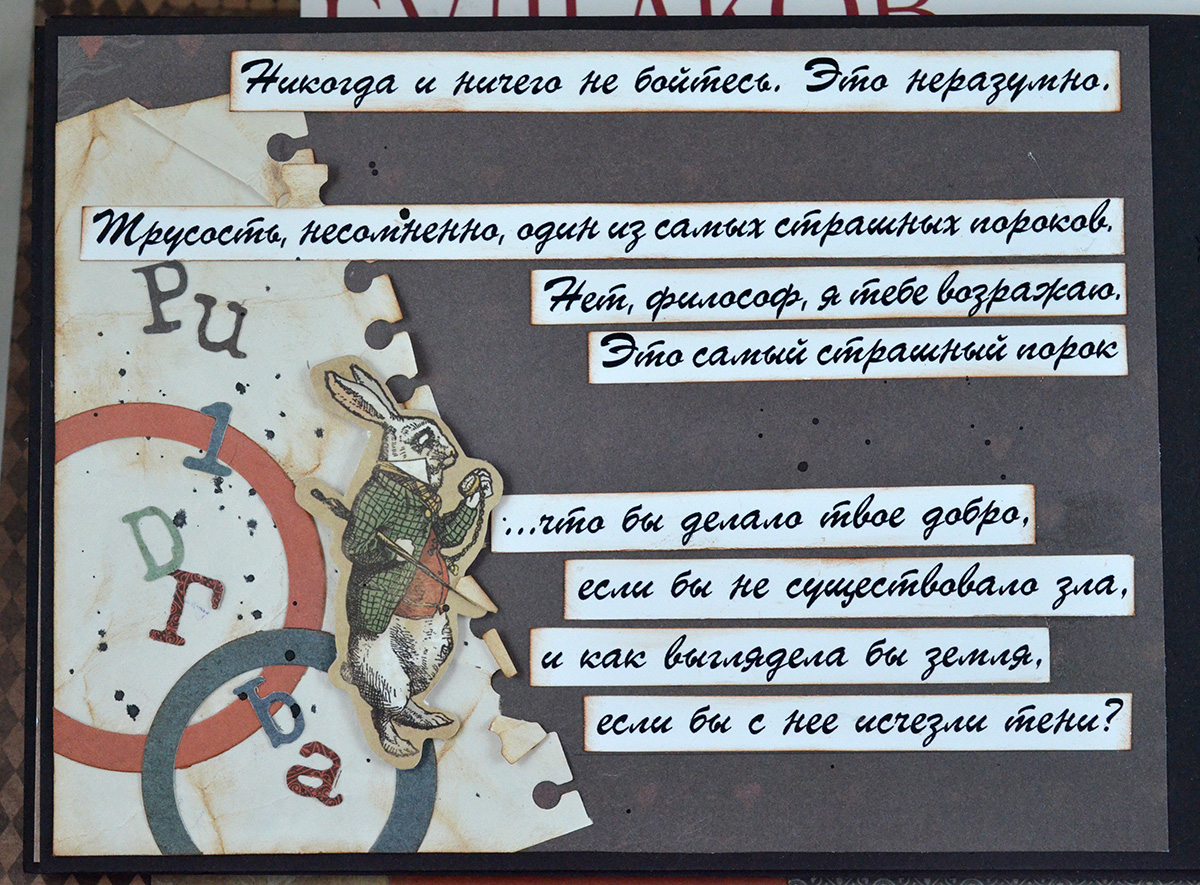 БУЛГАКОВ
Никогда и ничего не бойтесь. Это неразумно.
Трусость, несомненно, один из самых страшных пороков.
Нет, философ, я тебе возражаю.
Это самый страшный порок
...что бы делало твое добро,
если бы не существовало зла,
и как выглядела бы земля,
если бы с нее исчезли тени?
Ри
1
D
Г
Ь
а